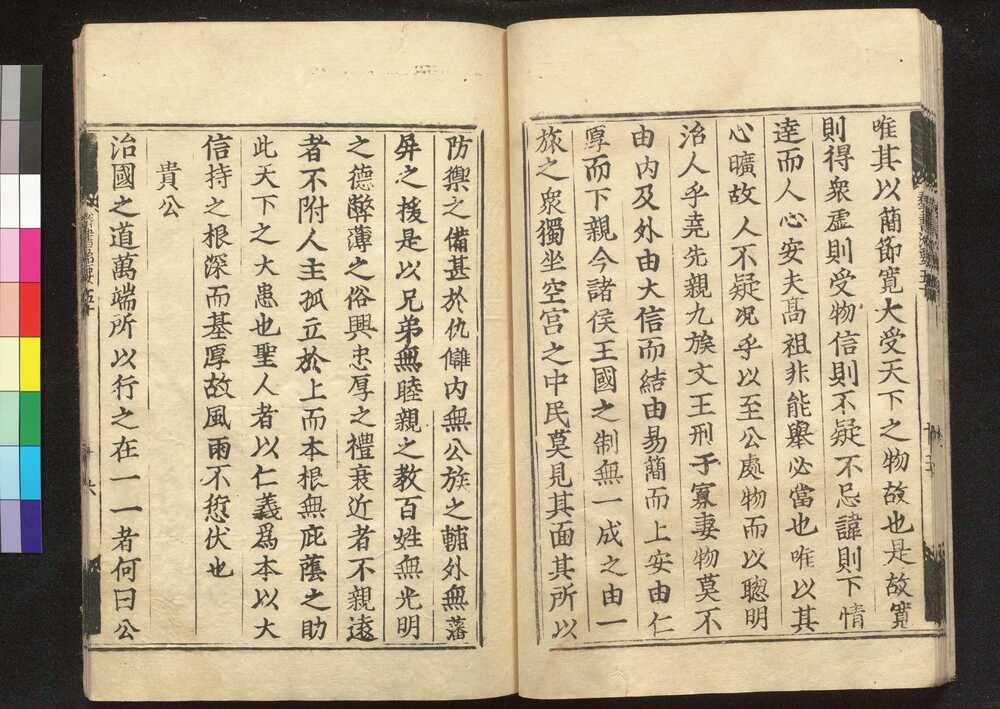 唯其以簡節寬大受天下之物故也是故寬
則得衆虚則受物信則不疑不忌諱則下情
達而人心安夫髙祖非能舉必當也唯以其
心曠故人不疑况乎以至公處物而以聦明
治人乎堯先親九族文王刑于寡妻物莫不
由内及外由大信而結由易簡而上安由仁
厚而下親今諸侯王國之制無一成之由一
旅之衆獨坐空宫之中民莫見其面其所以
防禦之備甚於仇讎内無公族之輔外無藩
屏之援是以兄弟無睦親之教百姓無光明
之德弊薄之俗興忠厚之禮衰近者不親逺
者不附人主孤立於上而本根無庇蔭之助
此天下之大患也聖人者以仁義爲本以大
信持之根深而基厚故風雨不愆伏也
貴公
治國之道萬端所以行之在一一者何曰公